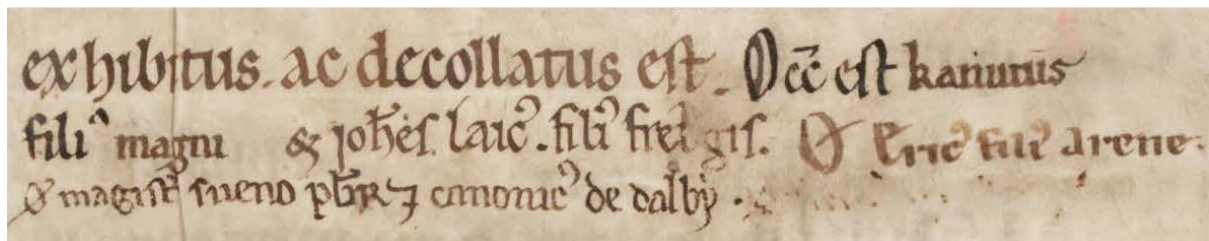 exhibitus. ac decollatus est. Occ̄ est kanutus
filiꝰ magni & joh̄es laicꝰ. filiꝰ gis. O Ericꝰ filiꝰ arene.
O magist̄ sueno pb̄r ⁊ canonicꝰ de dalby.